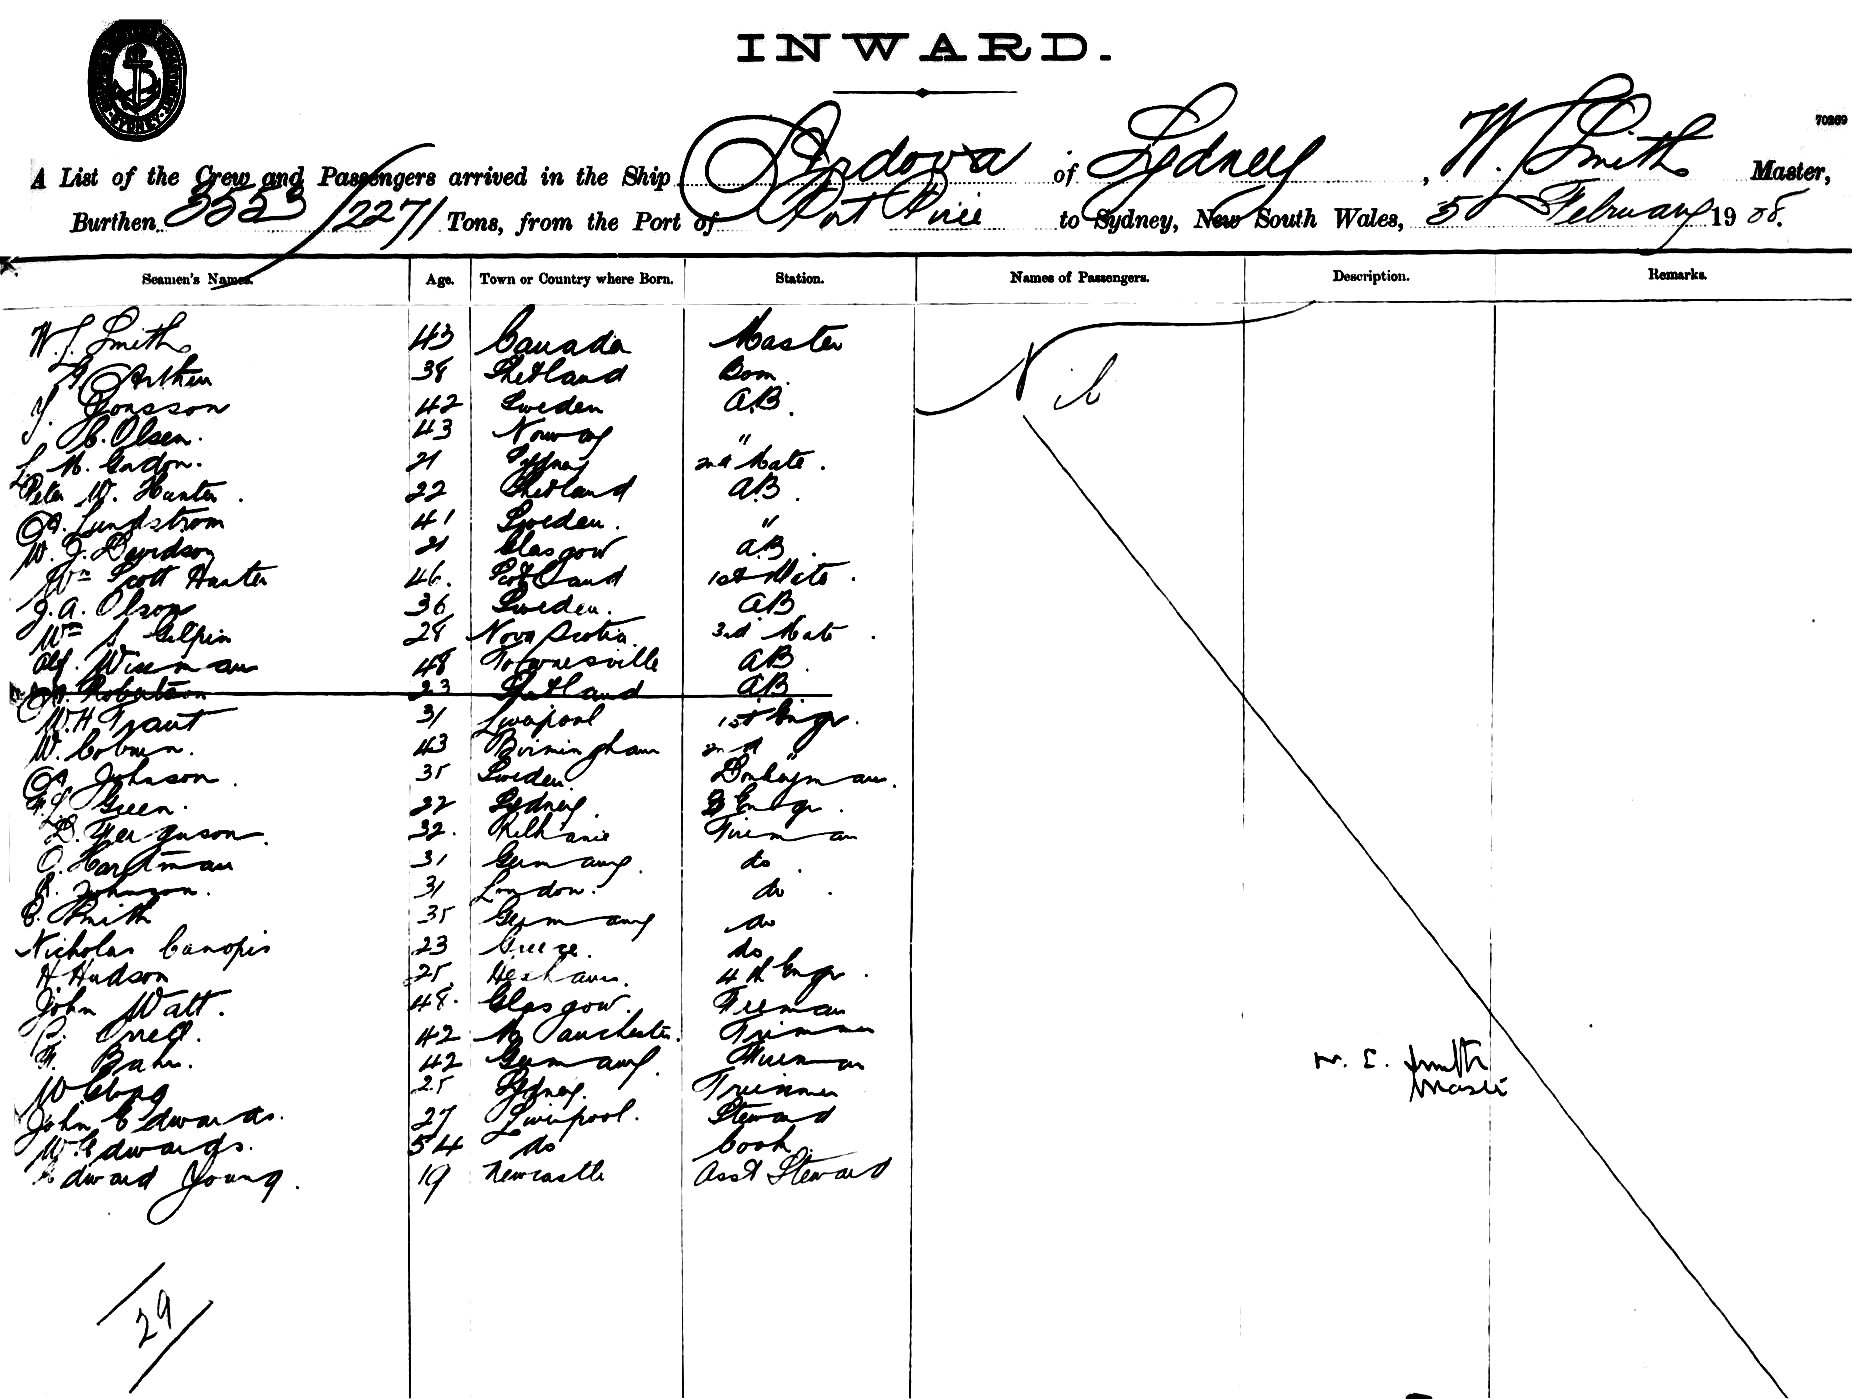 INWARD.
70269
SYDNEY
A List of the Crew and Passengers arrived in the Ship Ordova of Sydney, W. L. Smith Master,
Burthen 3523/2271 Tons, from the Port of Port Pirie to Sydney, New South Wales, 5 February 1908.
Seamen's Names. Age. Town or Country where Born. Station. Names of Passengers. Description. Remarks.
W. L. Smith 43 Canada Master
Arthur 38 Shetland Bosn. Nil
Jonsson 42 Sweden AB.
C. Olsen. 43 Norway "
L. M. Gordon. 21 Sydney 2nd Mate.
Peter W. Hunter. 22 Shetland AB.
A. Lundstrom 41 Sweden. "
W. J. Davidson 21 Glasgow AB.
Wm Scott Hunter 46. Scotland 1st Mate.
J. A. Olson 36 Sweden. AB
Wm S. Gilpin 28 Nova Scotia. 3rd Mate.
Alf. Wiseman 48 Townesville AB.
Robertson 23 Shetland AB
W. H. Traut 31 Liverpool 1st Engr.
W. Coburn. 43 Birmingham 2nd "
A. Johnson. 35 Sweden. Donkeyman.
Green. 22 Sydney. 3 Engr.
D. Ferguson. 32. Fireman
O. Hartman 31 Germany. do.
Johnson. 31 London. do.
Smith 35 Germany do
Nicholas Canopis 23 Greece. do
H Hudson 25 4th Engr.
John Watt. 48. Glasgow. Fireman
Orrell. 42 Manchester. Trimmer
Bahr. 42 Germany. Fireman
W Clogg 25 Sydney. Trimmer
John Edwards. 27 Liverpool. Steward
W. Edwards. 54 do Cook.
Edward Young. 19 Newcastle Asst Steward
W. L. Smith
Master
29